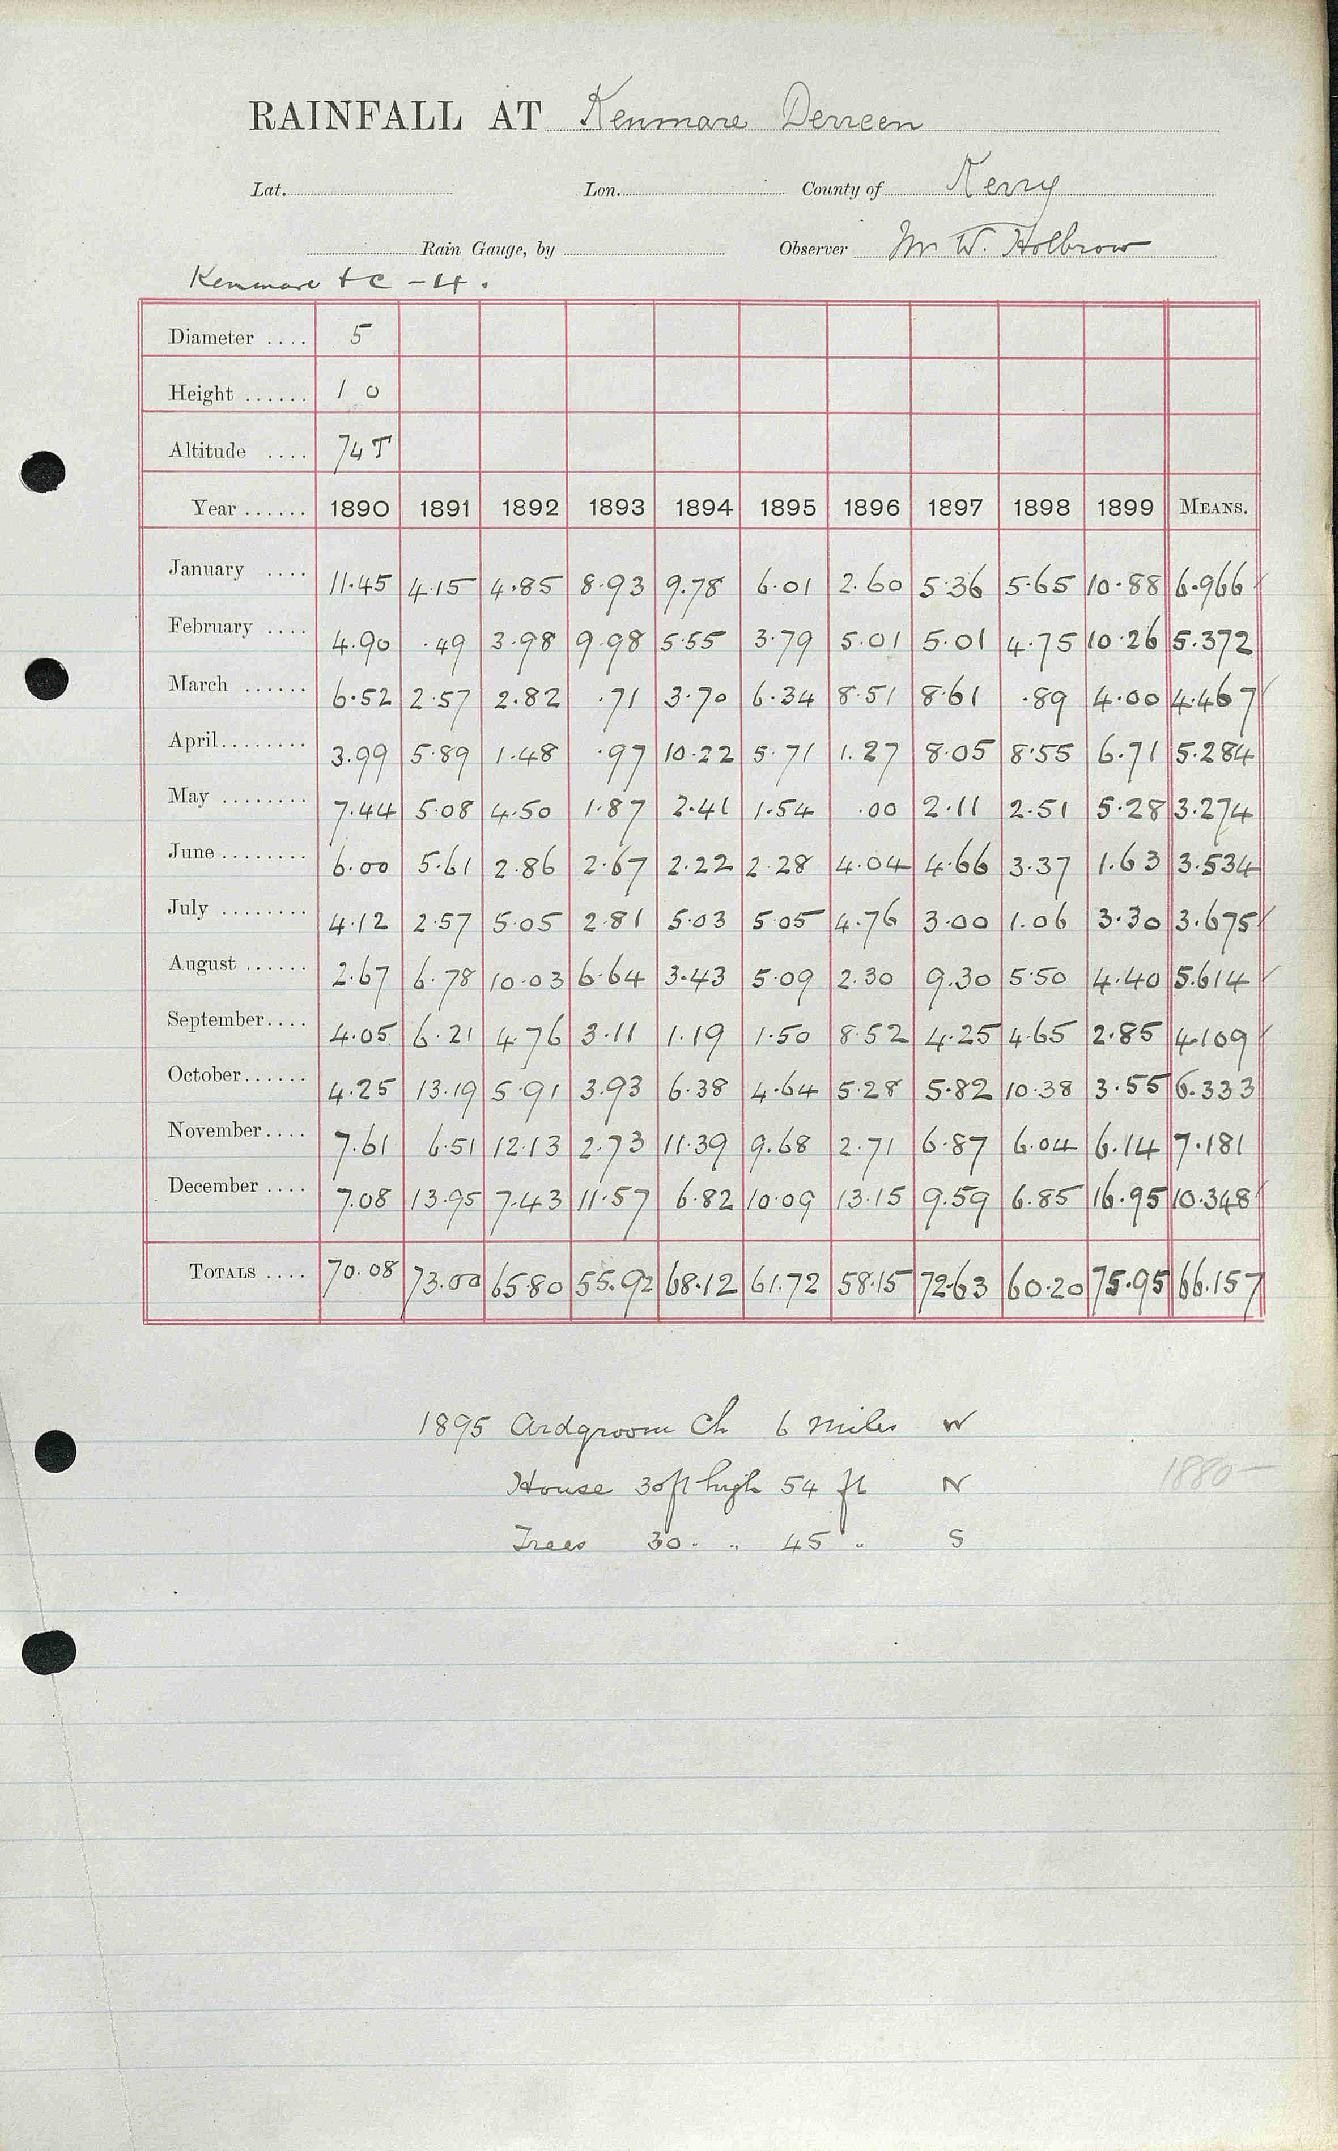 RAINFALL AT Kenmare Derreen
Lat. Lon. County of Kerry
Rain Gauge, by Observer Mr W. Holbrow
Kenmare + C - 4.
Diameter .... 5
Height ...... 1 0
Altitude .... 74 T
Year ...... 1890 1891 1892 1893 1894 1895 1896 1897 1898 1899 MEANS.
January .... 11.45 4.15 4.85 8.93 9.78 6.01 2.60 5.36 5.65 10.88 6.966
February .... 4.90 .49 3.98 9.98 5.55 3.79 5.01 5.01 4.75 10.26 5.372
March ...... 6.52 2.57 2.82 .71 3.70 6.34 8.51 8.61 .89 4.00 4.467
April........ 3.99 5.89 1.48 .97 10.22 5.71 1.27 8.05 8.55 6.71 5.284
May ........ 7.44 5.08 4.50 1.87 2.41 1.54 .00 2.11 2.51 5.28 3.274
June ........ 6.00 5.61 2.86 2.67 2.22 2.28 4.04 4.66 3.37 1.63 3.534
July ........ 4.12 2.57 5.05 2.81 5.03 5.05 4.76 3.00 1.06 3.30 3.675
August ...... 2.67 6.78 10.03 6.64 3.43 5.09 2.30 9.30 5.50 4.40 5.614
September.... 4.05 6.21 4.76 3.11 1.19 1.50 8.52 4.25 4.65 2.85 4.109
October...... 4.25 13.19 5.91 3.93 6.38 4.64 5.28 5.82 10.38 3.55 6.333
November.... 7.61 6.51 12.13 2.73 11.39 9.68 2.71 6.87 6.04 6.14 7.181
December .... 7.08 13.95 7.43 11.57 6.82 10.09 13.15 9.59 6.85 16.95 10.348
TOTALS .... 70.08 73.00 65.80 55.92 68.12 61.72 58.15 72.63 60.20 75.95 66.157
1895 Ardgroom Ch 6 miles W
House 30 ft high 54 ft N
1880-
Trees 30 " " 45 " S